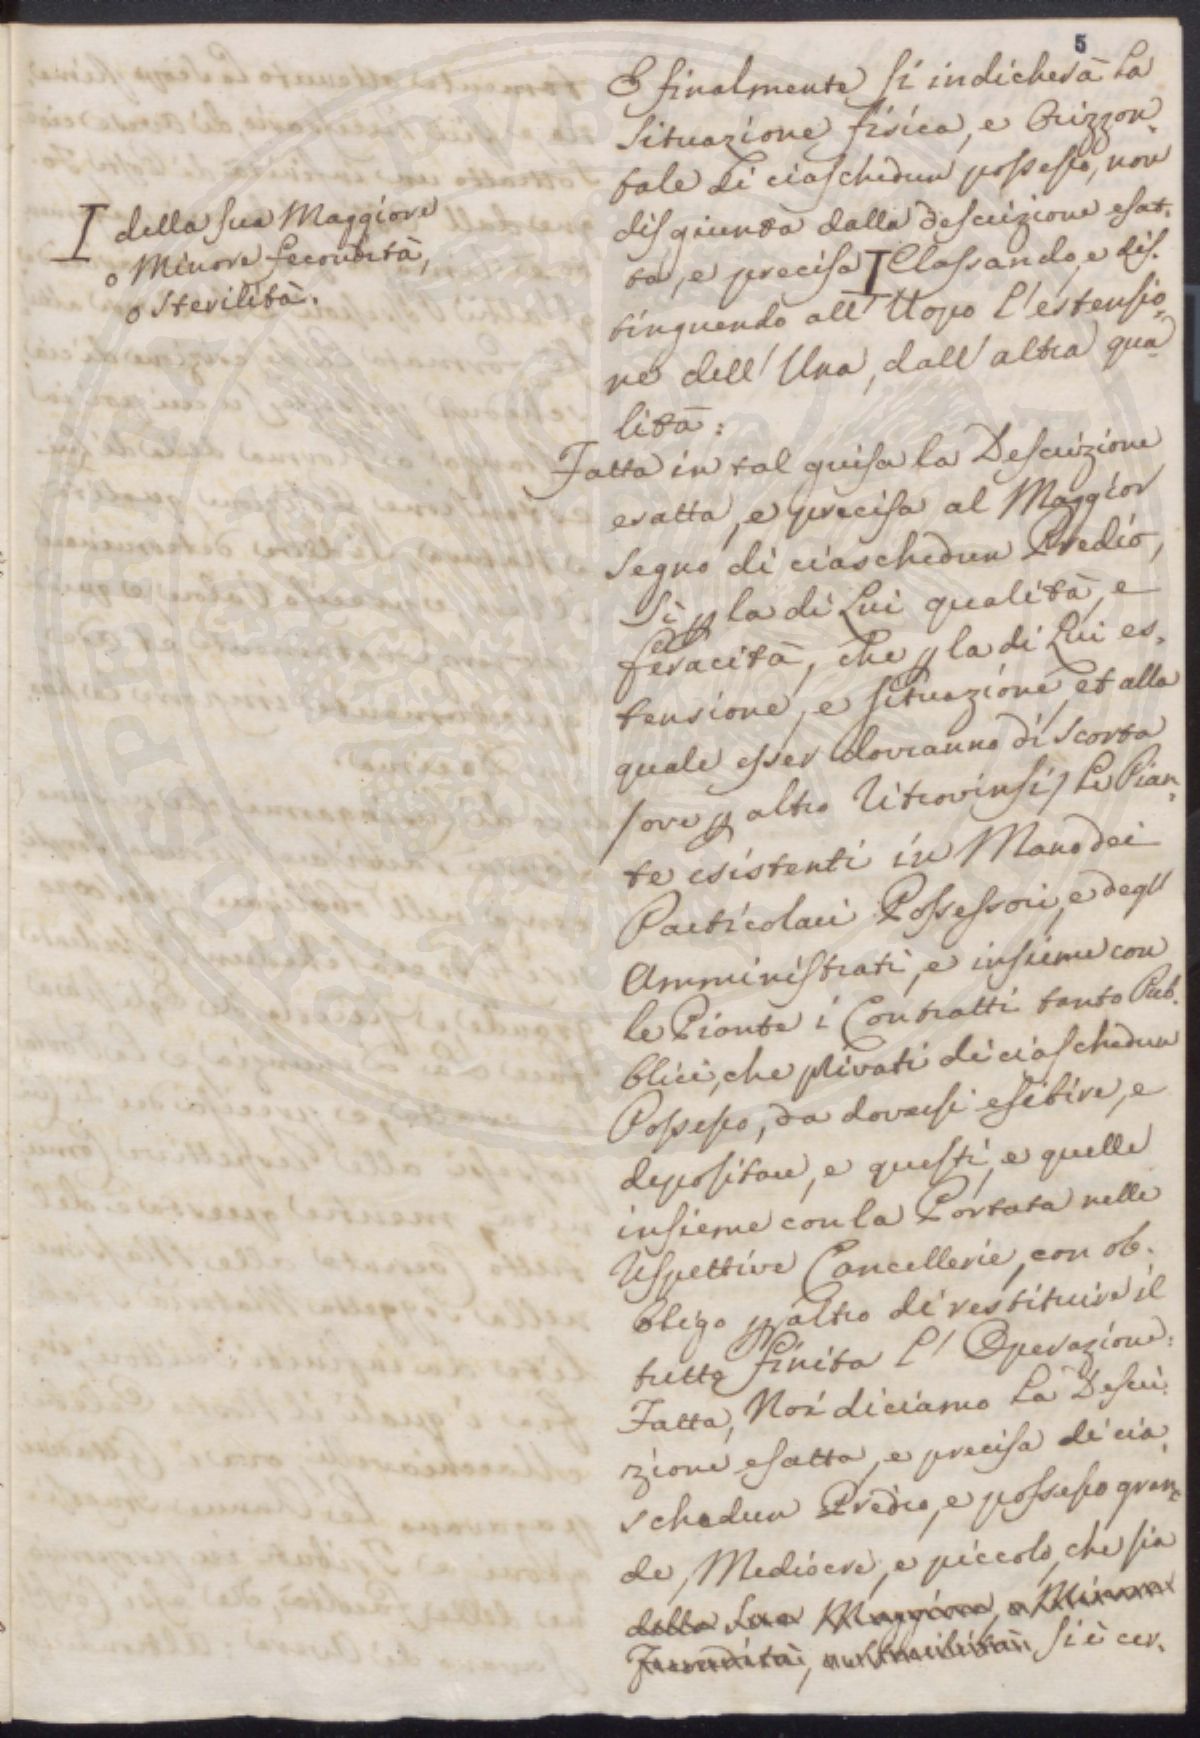 5
E finalmente si indicherà la
situazione fisica, e Orizzon-
tale di ciaschedun possesso, non
disgiunta dalla descrizione esat-
ta, e precisa I Classando, e dis-
tinguendo all' Uopo l'estensio-
ne dell' Una, dall' altra qua-
lità:
I della sua Maggiore
o Minore fecondità,
o sterilità.
Fatta in tal guisa la Descrizione
esatta, e precisa al Maggior
segno di ciaschedun Predio,
Sì p la di Lui qualità, e
feracità, che p la di Lui es-
tensione, e situazione, et alla
quale esser dovranno di scorta
/ove p altro ritrovinsi/ Le Pian-
te esistenti in Mano dei
Particolari Possessori, e degl'
Amministrati, e insieme con
le Piante i Contratti tanto Pub-
blici, che privati di ciaschedun
Possesso, da doversi esibire, e
depositare, e questi, e quelle
insieme con la Portata nelle
respettive Cancellerie, con ob-
bligo p altro di restituire il
tutto finita l' Operazione:
Fatta, Noi diciamo la Descri-
zione esatta, e precisa di cia-
schedun Predio, e possesso gran-
de, Mediocre, e piccolo, che sia
della sua Maggiore, o Minore
Fecondità, o sterilità, si è cer-